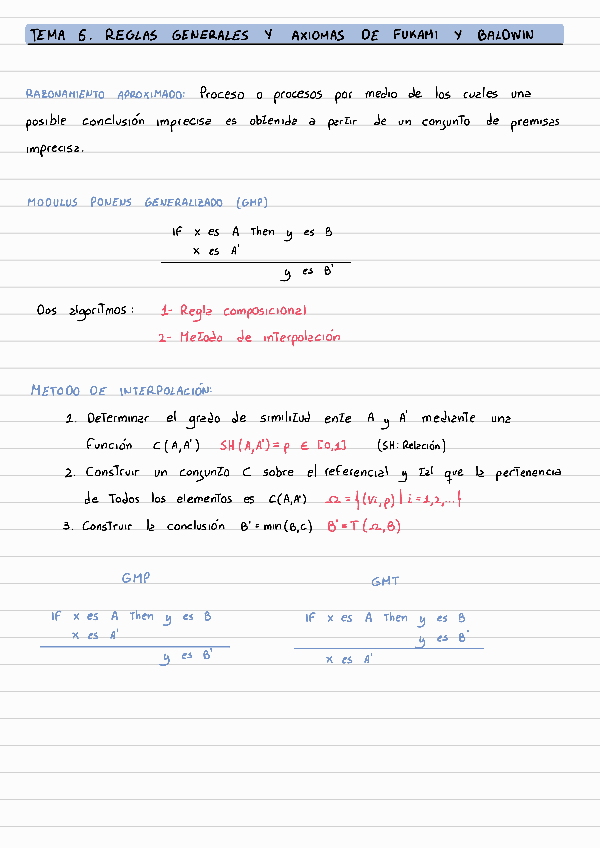 TEMA 6. REGLAS GENERALES Y AXIOMAS DE FUKAMI Y BALDWIN
RAZONAMIENTO APROXIMADO: Proceso o procesos por medio de los cuales una
posible conclusión imprecisa es obtenida a partir de un conjunto de premisas
imprecisa.
MODULUS PONENS GENERALIZADO (GMP)
IF x es A Then y es B
x es A'
y es B'
Dos algoritmos: 1- Regla composicional
2- Metodo de interpolación
METODO DE INTERPOLACIÓN:
1. Determinar el grado de similitud ente A y A' mediante una
Función C(A,A') SH(A,A')=p ∈ [0,1] (SH: Relación)
2. Construir un conjunto C sobre el referencial y tal que la pertenencia
de todos los elementos es C(A,A') Ω={(Vi,p) | i=1,2,...{
3. Construir la conclusión B'=min(B,C) B'=T(Ω,B)
GMP GMT
IF x es A Then y es B IF x es A Then y es B
x es A' y es B'
y es B' x es A'